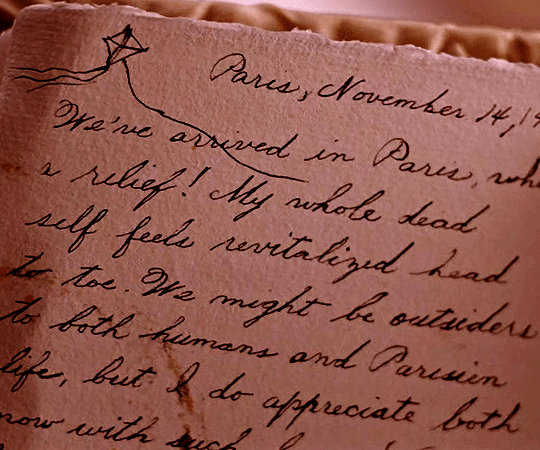 Paris, November 14, 19
We've arrived in Paris,
a relief! My whole dead
self feels revitalized head
to toe. We might be outsiders
to both humans and Parisien
life, but I do appreciate both
now with such